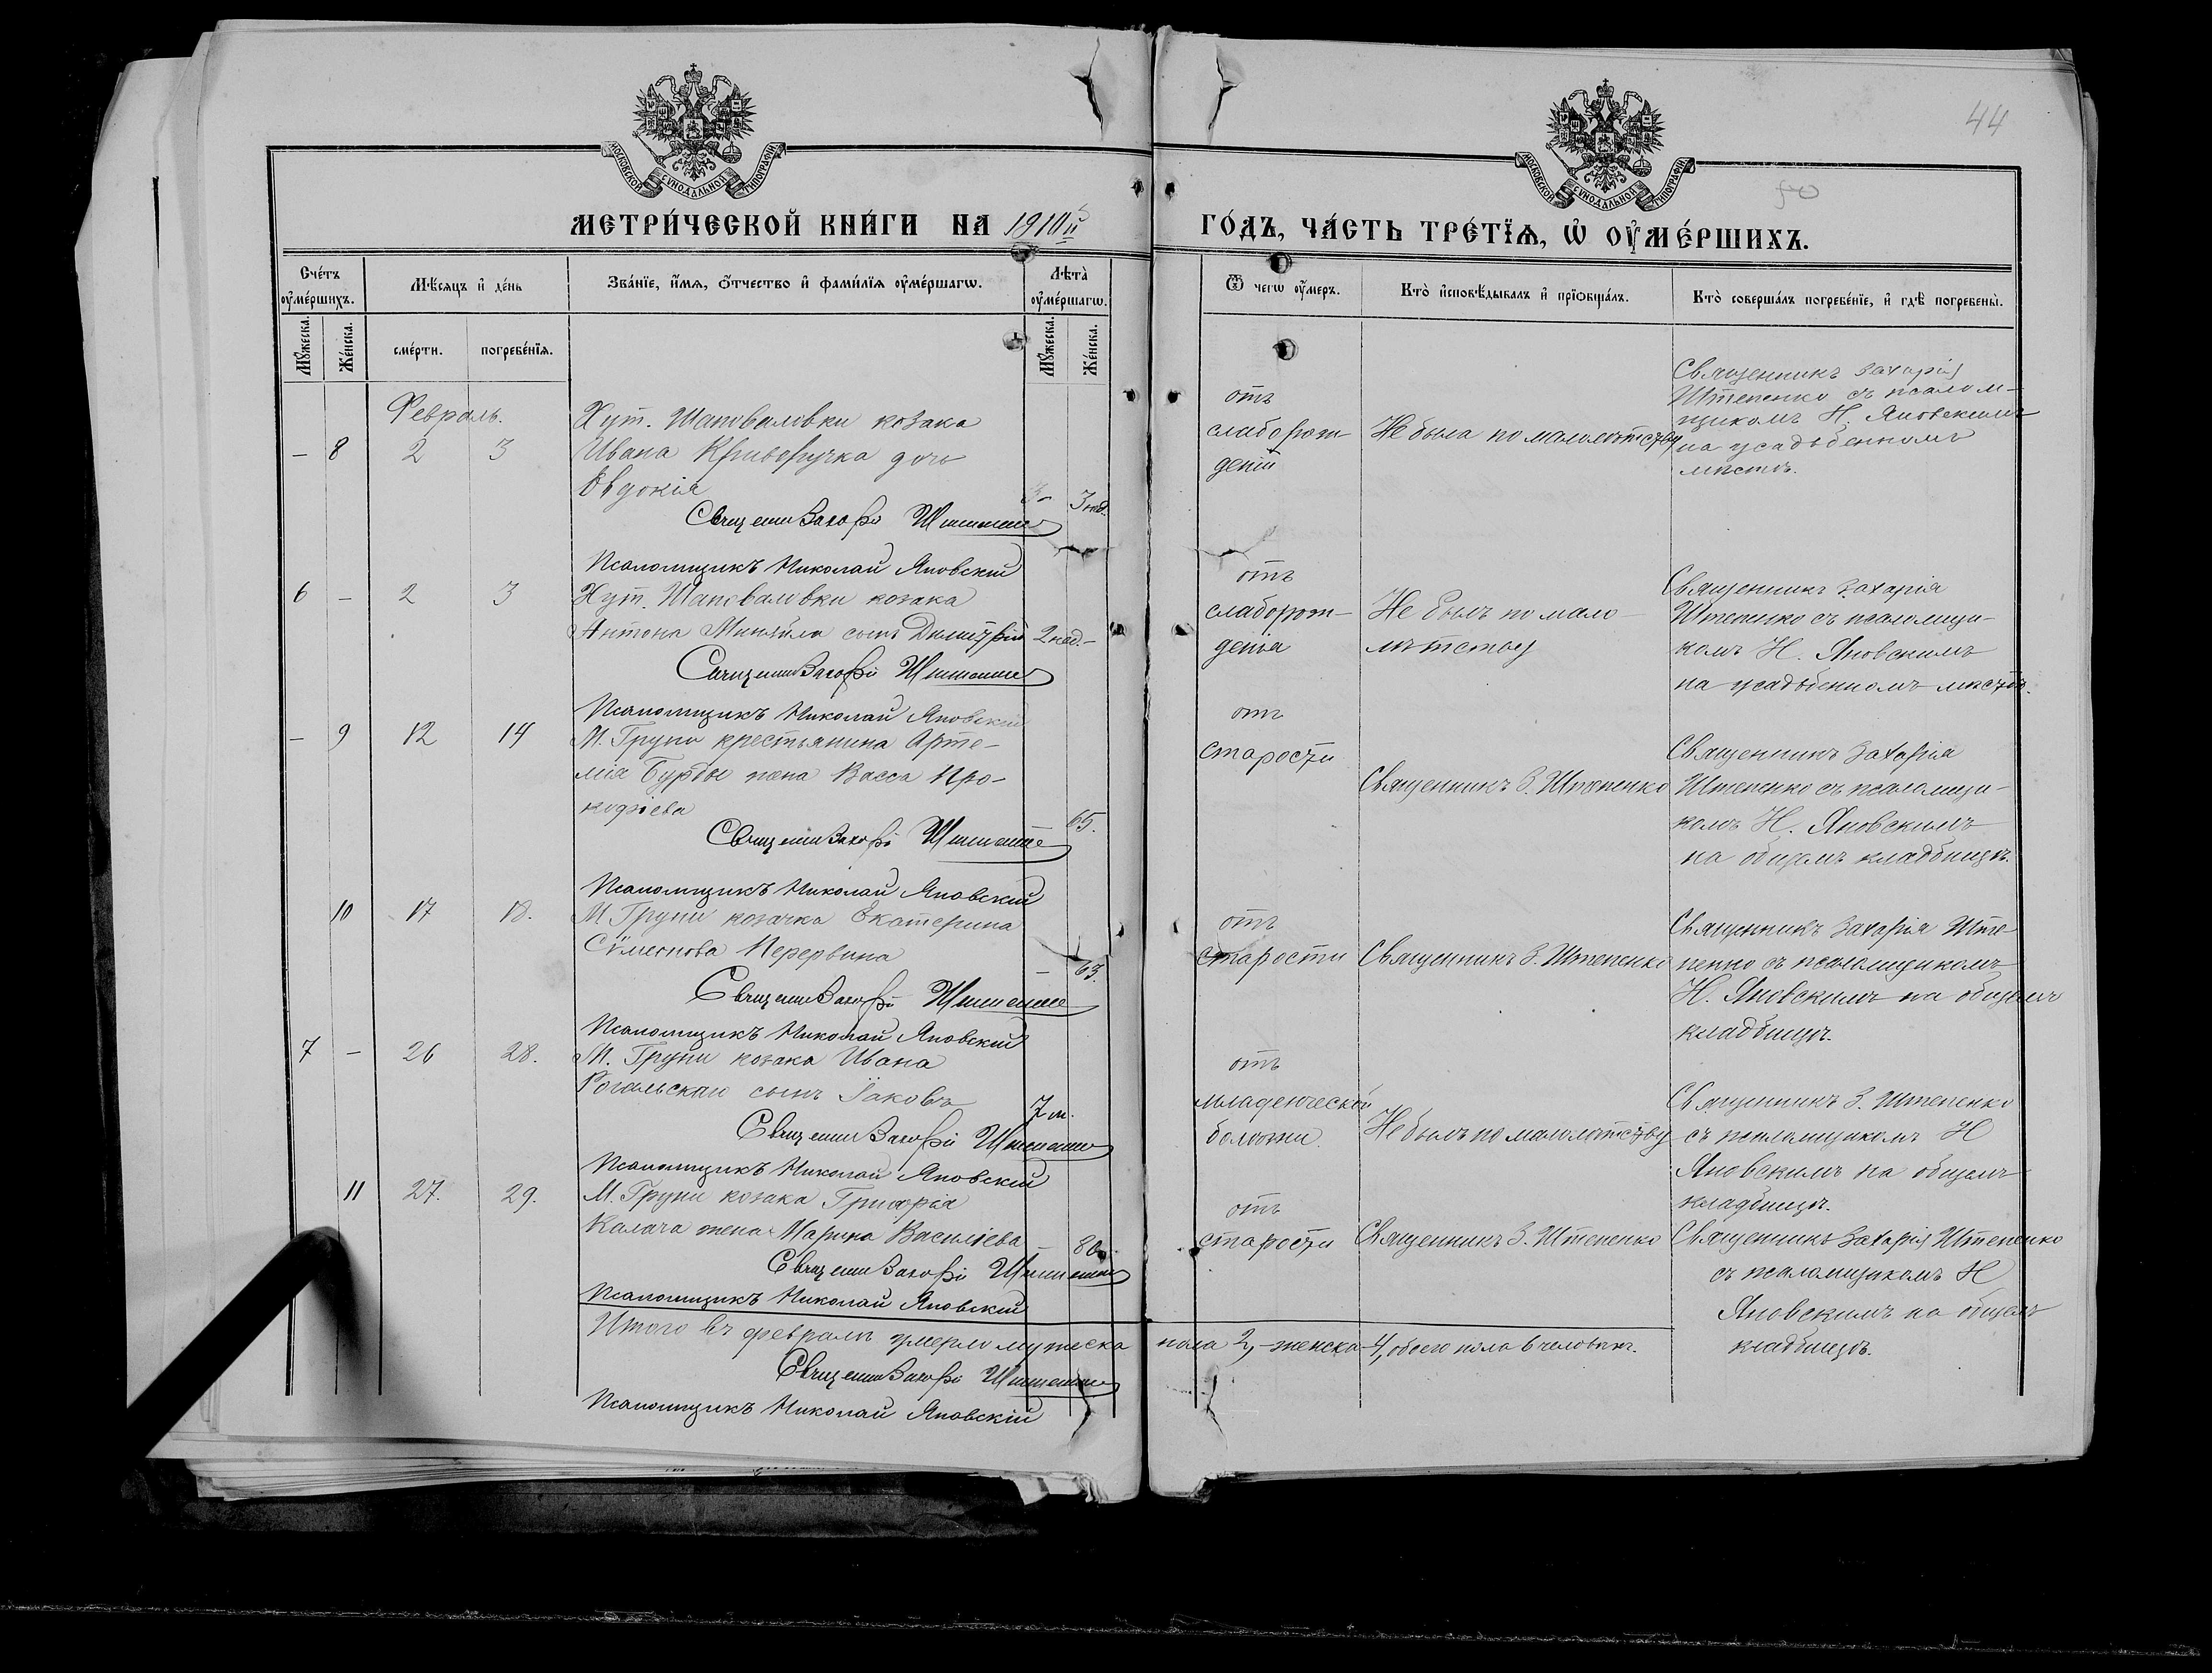 44
МОСКОВСКОЙ СѴНОДАЛЬНОЙ ТИПОГРАФІИ
МОСКОВСКОЙ СѴНОДАЛЬНОЙ ТИПОГРАФІИ
МЕТРИ́ЧЕСКОЙ КНИ́ГИ НА 1910й
ГО́ДЪ, ЧА́СТЬ ТРЕ́ТЇѦ, Ѽ ОУ҆МЕ́РШИХЪ.
Сче́тъ оу҆ме́ршихъ.
Мѣ́сяцъ и҆ де́нь
Зва́нїе, и҆́мѧ, ѻ҆́тчество и҆ фами́лїѧ оу҆ме́ршагѡ.
Лѣта̀ оу҆ме́ршагѡ.
Ѿ чегѡ̀ оу҆́меръ.
Кто̀ и҆сповѣ́дывалъ и҆ прїѡбща́лъ.
Кто̀ соверша́лъ погребе́нїе, и҆ гдѣ̀ погребены̀.
Мꙋ́жеска.
Же́нска.
сме́рти.
погребе́нїѧ.
Мꙋ́жеска.
Же́нска.
Февраль.
– 8 2 3
Хут. Шаповаловки козака
Ивана Криворучка дочь
Евдокія
3 нед.
Священ Захарій Штепенко
Псаломщикъ Николай Яновскій
отъ
слаборож-
денія
Не была по малолѣтству
Священникъ Захарія
Штепенко съ псалом-
щикомъ Н. Яновскимъ
на усадьбенномъ
мѣстѣ.
6 – 2 3
Хут. Шаповаловки козака
Антона Миняйла сынъ Димитрій 2 нед. –
Священ Захарій Штепенко
Псаломщикъ Николай Яновскій
отъ
слаборож-
денія
Не былъ по мало-
лѣтству
Священникъ Захарія
Штепенко съ псаломщи-
комъ Н. Яновскимъ
на усадьбенномъ мѣстѣ.
– 9 12 14
М. Груни крестьянина Арте-
мія Бурды жена Васса Про-
кофіева
65.
Священ Захарій Штепенко
Псаломщикъ Николай Яновскій
отъ
старости
Священникъ З. Штепенко
Священникъ Захарія
Штепенко съ псаломщи-
комъ Н. Яновскимъ
на общемъ кладбищѣ.
10 17 18.
М. Груни козачка Екатерина
Сѵмеонова Перервина
– 63.
Священ Захарій Штепенко
Псаломщикъ Николай Яновскій
отъ
старости
Священникъ З. Штепенко
Священникъ Захарія Ште-
пенко съ псаломщикомъ
Н. Яновскимъ на общемъ
кладбищѣ.
7 – 26 28.
М. Груни козака Ивана
Рогальскаго сынъ Іаковъ
7 м.
Священ Захарій Штепенко
Псаломщикъ Николай Яновскій
отъ
младенческой
болѣзни.
Не былъ по малолѣтству
Священникъ З. Штепенко
съ псаломщикомъ Н
Яновскимъ на общемъ
кладбищѣ.
11 27. 29.
М. Груни козака Григорія
Калача жена Марина Василіева
– 80.
Священ Захарій Штепенко
Псаломщикъ Николай Яновскій
отъ
старости
Священникъ З. Штепенко
Священникъ Захарія Штепенко
съ псаломщикомъ Н
Яновскимъ на общемъ
кладбищѣ.
Итого въ февралѣ умерло мужеска пола 2, – женска – 4, обоего пола 6 человѣкъ.
Священ Захарій Штепенко
Псаломщикъ Николай Яновскій